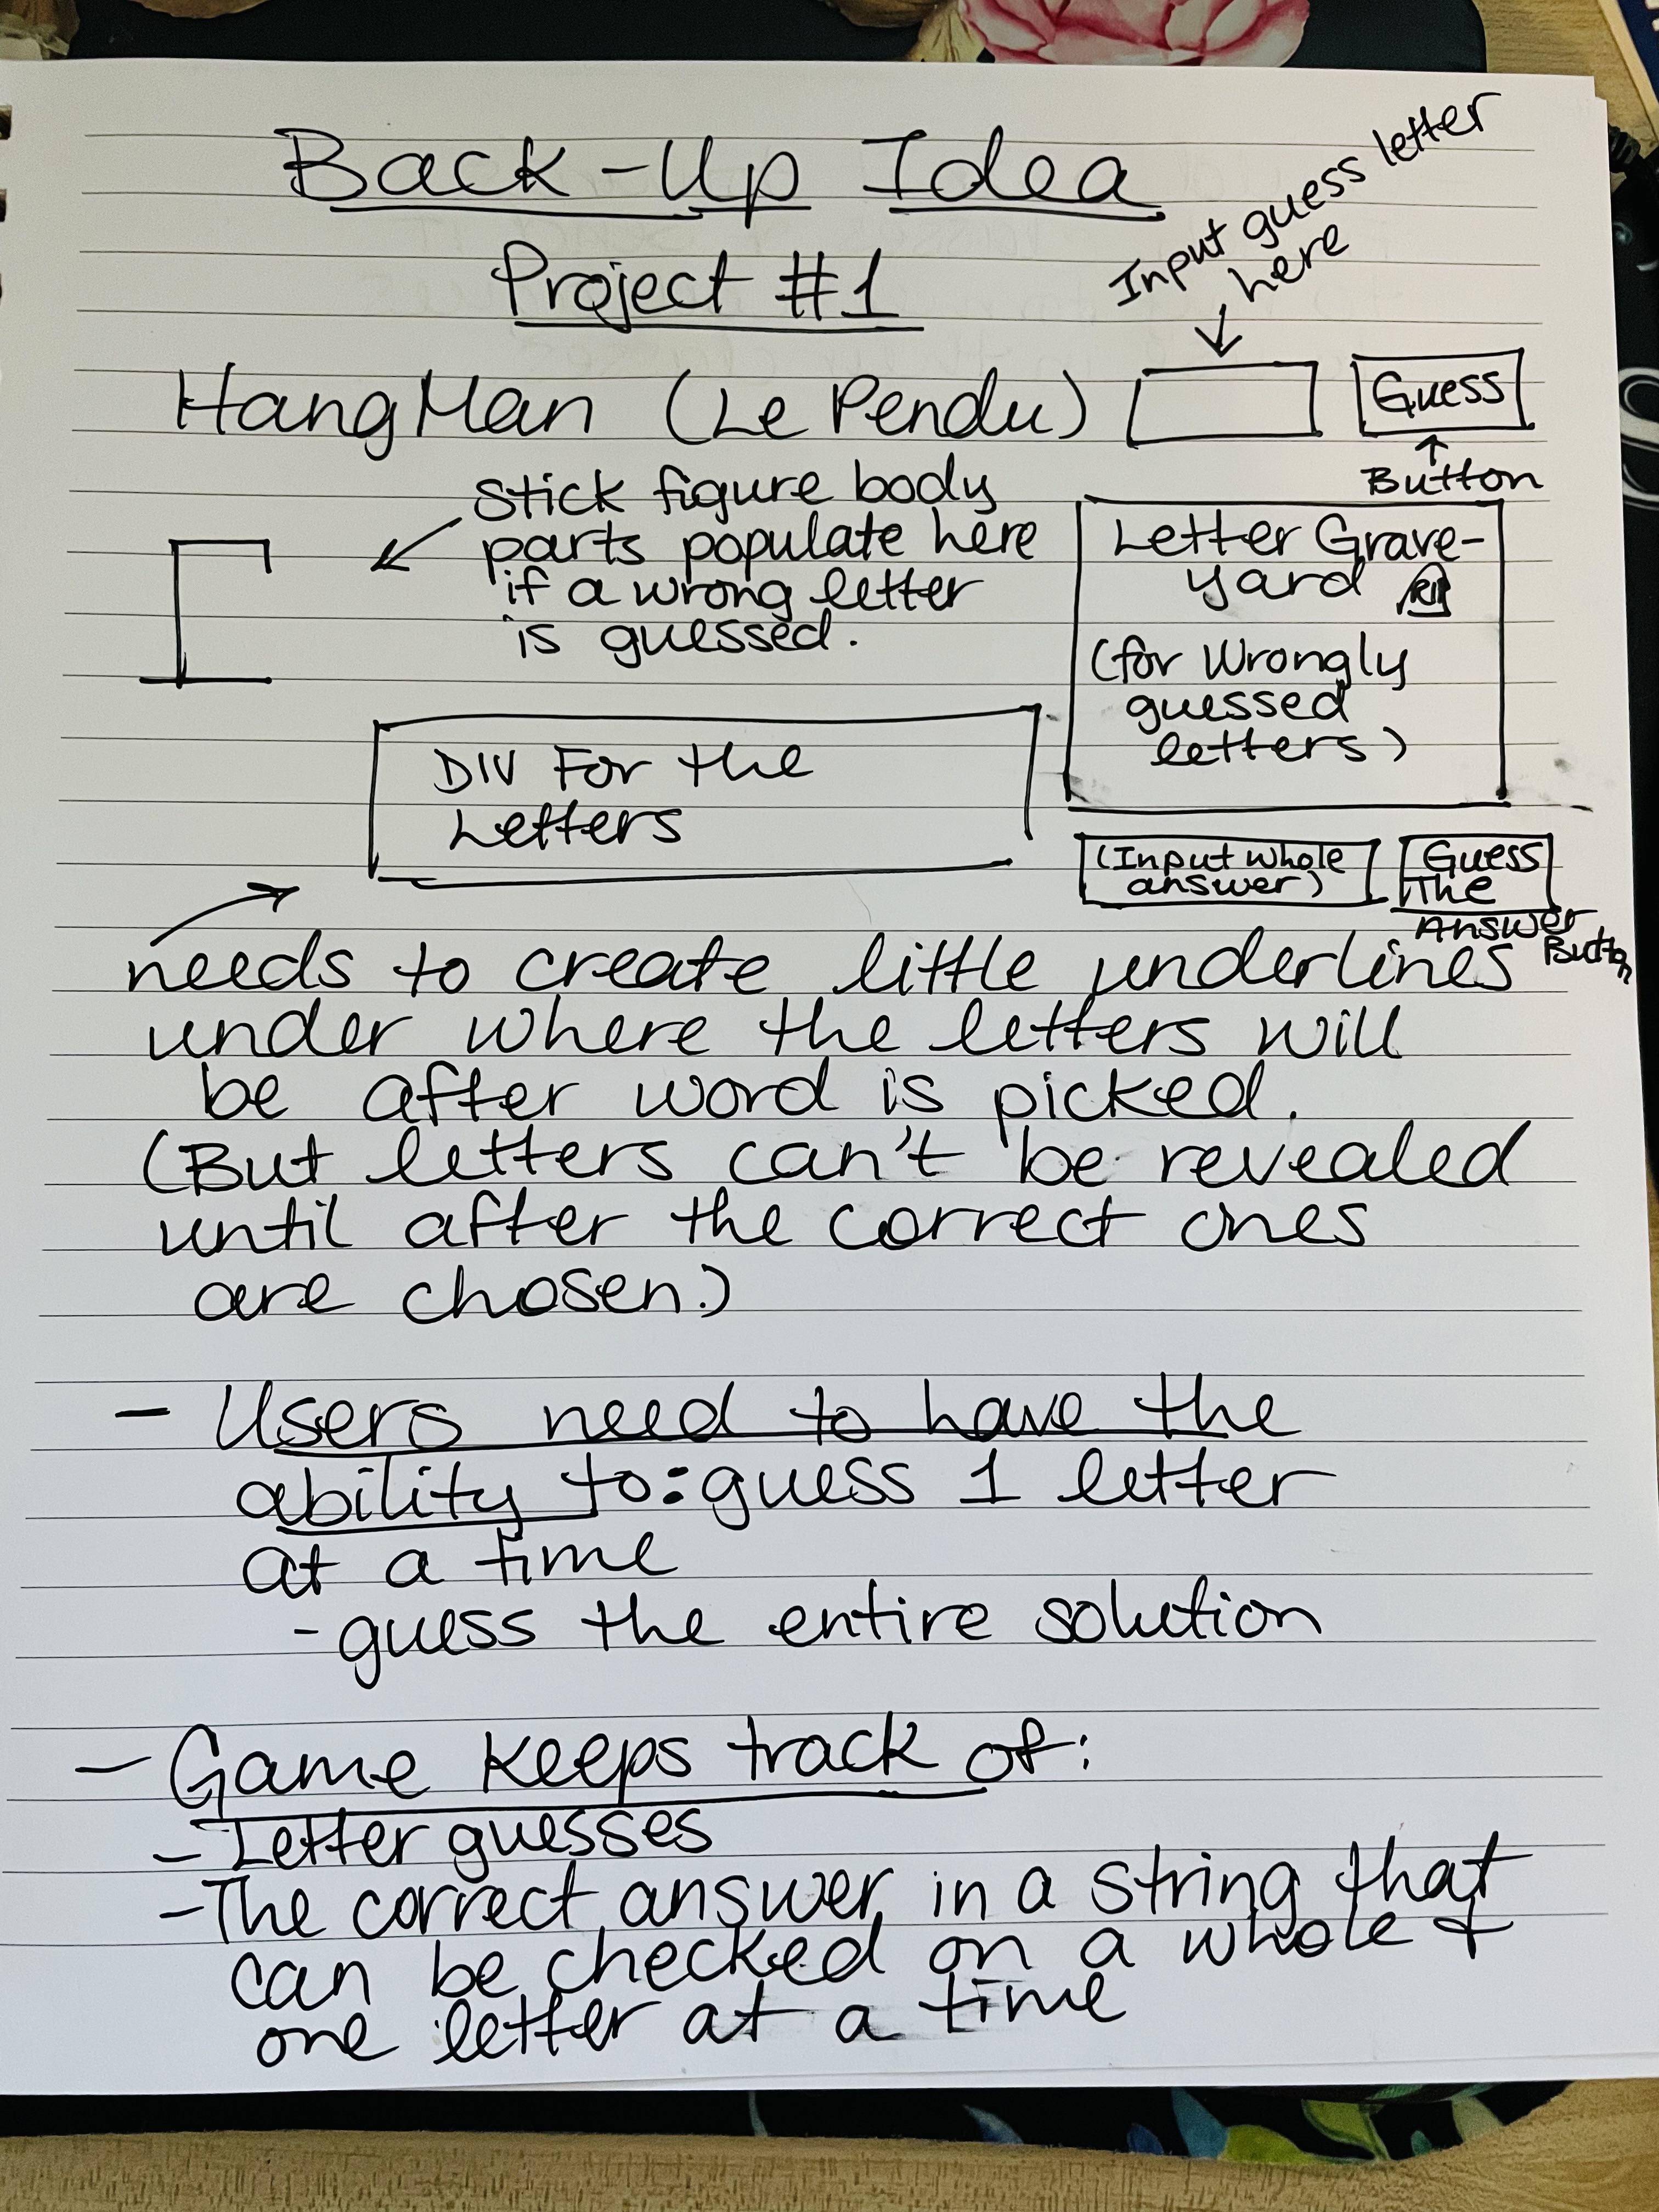 Back-Up Idea
Project #1
Input guess letter
here
HangMan (Le Pendu)
Guess
Button
Stick figure body
parts populate here
if a wrong letter
is guessed.
Letter Grave-
yard
(for Wrongly
guessed
letters)
DIV For the
Letters
(Input whole
answer)
Guess
The
Answer
Button
needs to create little underlines
under where the letters will
be after word is picked.
(But letters can't be revealed
until after the correct ones
are chosen.)
- Users need to have the
ability to: guess 1 letter
at a time
- guess the entire solution
- Game keeps track of:
- Letter guesses
- The correct answer in a string that
can be checked on a whole +
one letter at a time